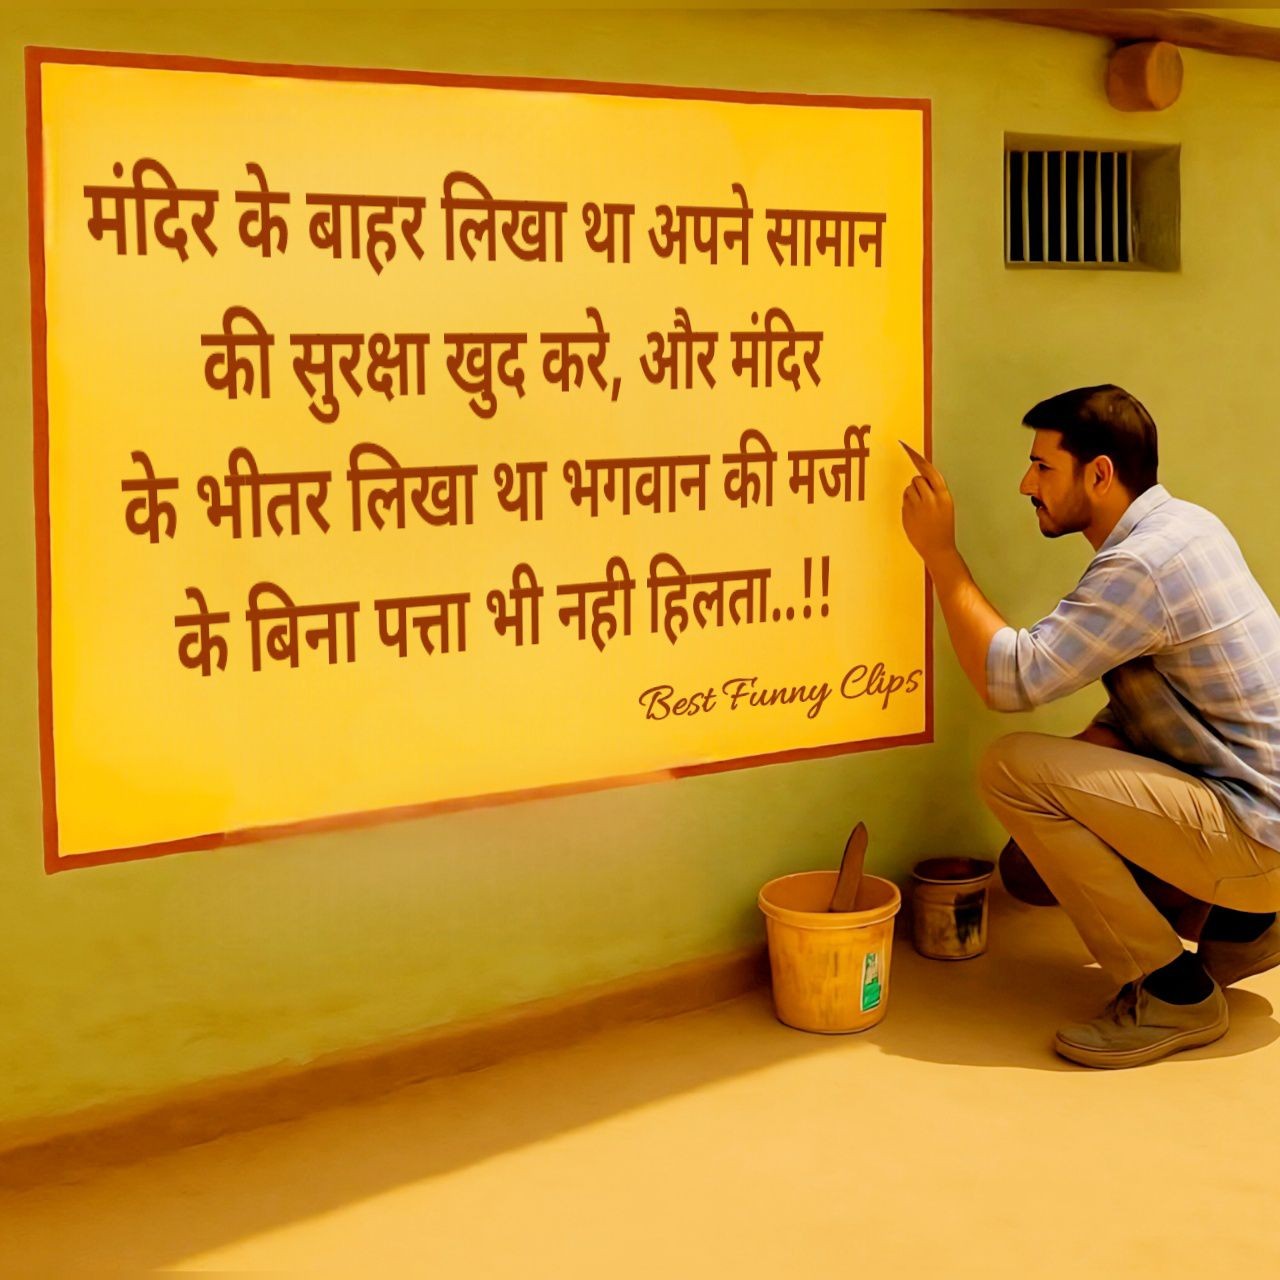 मंदिर के बाहर लिखा था अपने सामान
की सुरक्षा खुद करे, और मंदिर
के भीतर लिखा था भगवान की मर्जी
के बिना पत्ता भी नही हिलता..!!
Best Funny Clips